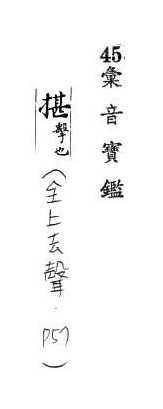 45彙音寶鑑
揕擊也(全上去聲.P57)